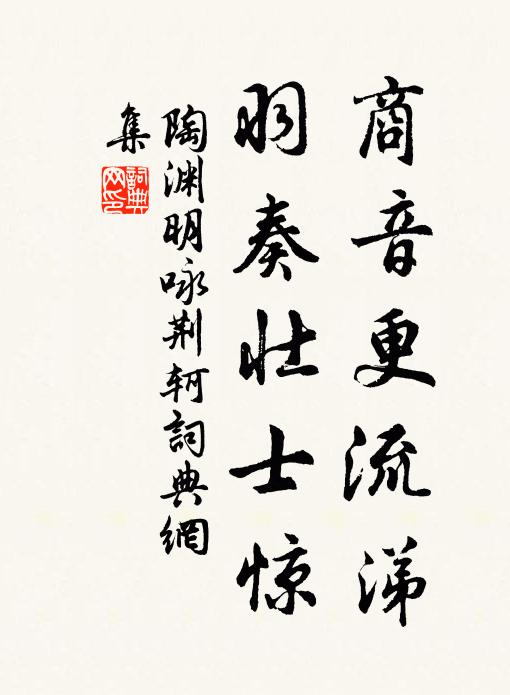 商音更流涕
羽奏壮士惊
陶渊明咏荆轲詞典網
集
詞典网印